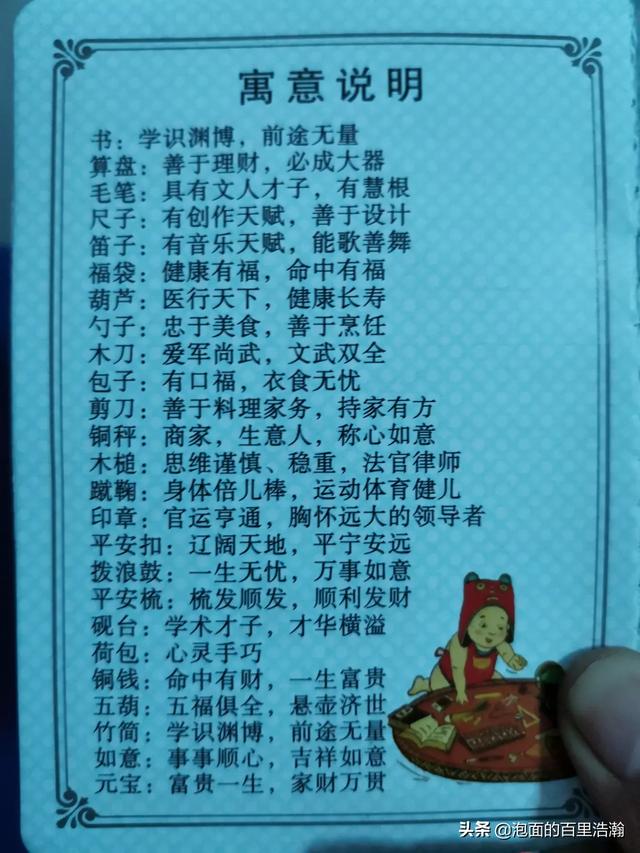 寓意说明
书：学识渊博，前途无量
算盘：善于理财，必成大器
毛笔：具有文人才子，有慧根
尺子：有创作天赋，善于设计
笛子：有音乐天赋，能歌善舞
福袋：健康有福，命中有福
葫芦：医行天下，健康长寿
勺子：忠于美食，善于烹饪
木刀：爱军尚武，文武双全
包子：有口福，衣食无忧
剪刀：善于料理家务，持家有方
铜秤：商家，生意人，称心如意
木槌：思维谨慎、稳重，法官律师
蹴鞠：身体倍儿棒，运动体育健儿
印章：官运亨通，胸怀远大的领导者
平安扣：辽阔天地，平宁安远
拨浪鼓：一生无忧，万事如意
平安梳：梳发顺发，顺利发财
砚台：学术才子，才华横溢
荷包：心灵手巧
铜钱：命中有财，一生富贵
五葫：五福俱全，悬壶济世
竹简：学识渊博，前途无量
如意：事事顺心，吉祥如意
元宝：富贵一生，家财万贯
头条 @泡面的百里浩瀚